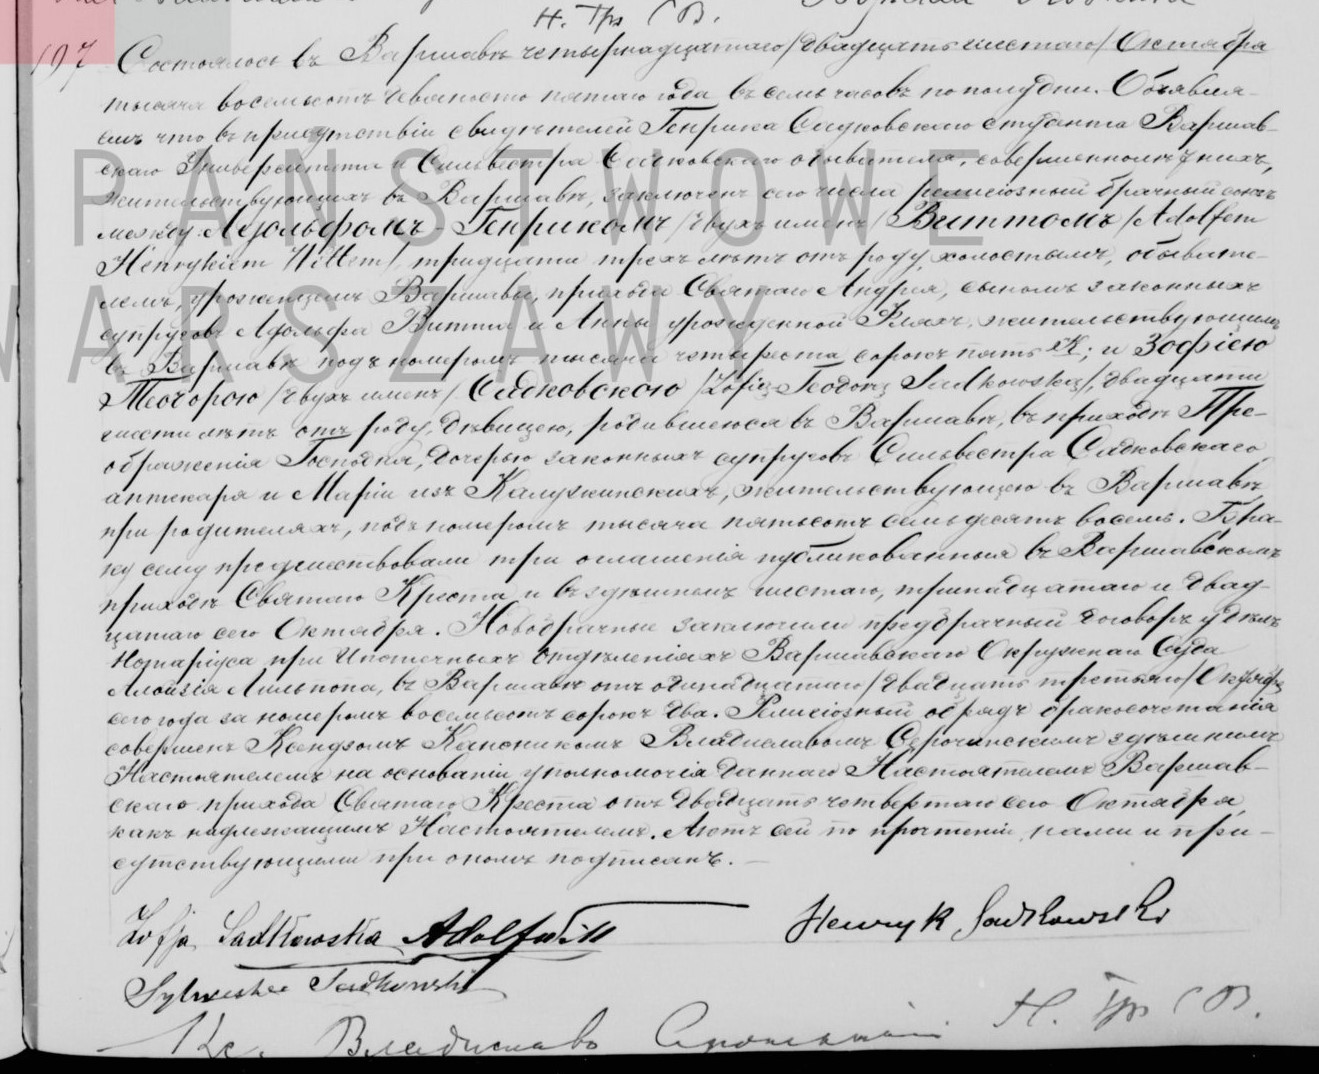 Н. Тр С В.
197 Состоялось въ Варшавѣ четырнадцатаго /двадцать шестаго/ Октября
тысяча восемьсотъ девяносто пятаго года въ семь часовъ пополудни. Объявля-
емъ что въ присутствіи свидѣтелей Генрика Садковскаго студента Варшав-
скаго Университета и Сильвестра Садковскаго обывателя, совершеннолѣтнихъ,
жительствующихъ въ Варшавѣ, заключенъ сего числа религіозный брачный союзъ
между Адольфомъ-Генрикомъ /двухъ именъ/ Виттомъ /Adolfem
Henrykiem Wittem/, тридцати трехъ лѣтъ отъ роду, холостымъ, обывате-
лемъ, уроженцемъ Варшавы, прихода Святаго Андрея, сыномъ законныхъ
супруговъ Адольфа Витта и Анны урожденной Фляхъ, жительствующимъ
въ Варшавѣ подъ номеромъ тысяча четыреста сорокъ пять; и Зофіею
Теодорою /двухъ именъ/ Садковскою /Zofią Teodorą Sadkowską/, двадцати
шести лѣтъ отъ роду, дѣвицею, родившеюся въ Варшавѣ, въ приходѣ Пре-
ображенія Господня, дочерью законныхъ супруговъ Сильвестра Садковскаго,
аптекаря и Маріи изъ жительствующею въ Варшавѣ
при родителяхъ, подъ номеромъ тысяча пятьсотъ семьдесятъ восемь. Бра-
ку сему предшествовали три оглашенія публикованныя въ Варшавскомъ
приходѣ Святаго Креста и въ здѣшнемъ шестаго, тринадцатаго и двад-
цатаго сего Октября. Новобрачные заключили предбрачный договоръ у дѣлъ
Нотаріуса при Ипотечныхъ Отдѣленіяхъ Варшавскаго Окружнаго Суда
Алоизія Лильпопа, въ Варшавѣ отъ одинадцатаго /двадцать третьяго/ Октября
сего года за номеромъ восемьсотъ сорокъ два. Религіозный обрядъ бракосочетанія
совершенъ Ксендзомъ Каноникомъ Владиславомъ Сѣрочинскимъ здѣшнимъ
Настоятелемъ на основаніи уполномочія даннаго Настоятелемъ Варшав-
скаго прихода Святаго Креста отъ двадцать четвертаго сего Октября,
какъ надлежащимъ Настоятелемъ. Актъ сей по прочтеніи, нами и при-
сутствующими при ономъ подписанъ. —
Zofja Sadkowska Adolf Witt Henryk Sadkowski
Sylwester Sadkowski
Кс. Владиславъ Н. Тр С В.
PAŃSTWOWE
WARSZAWY